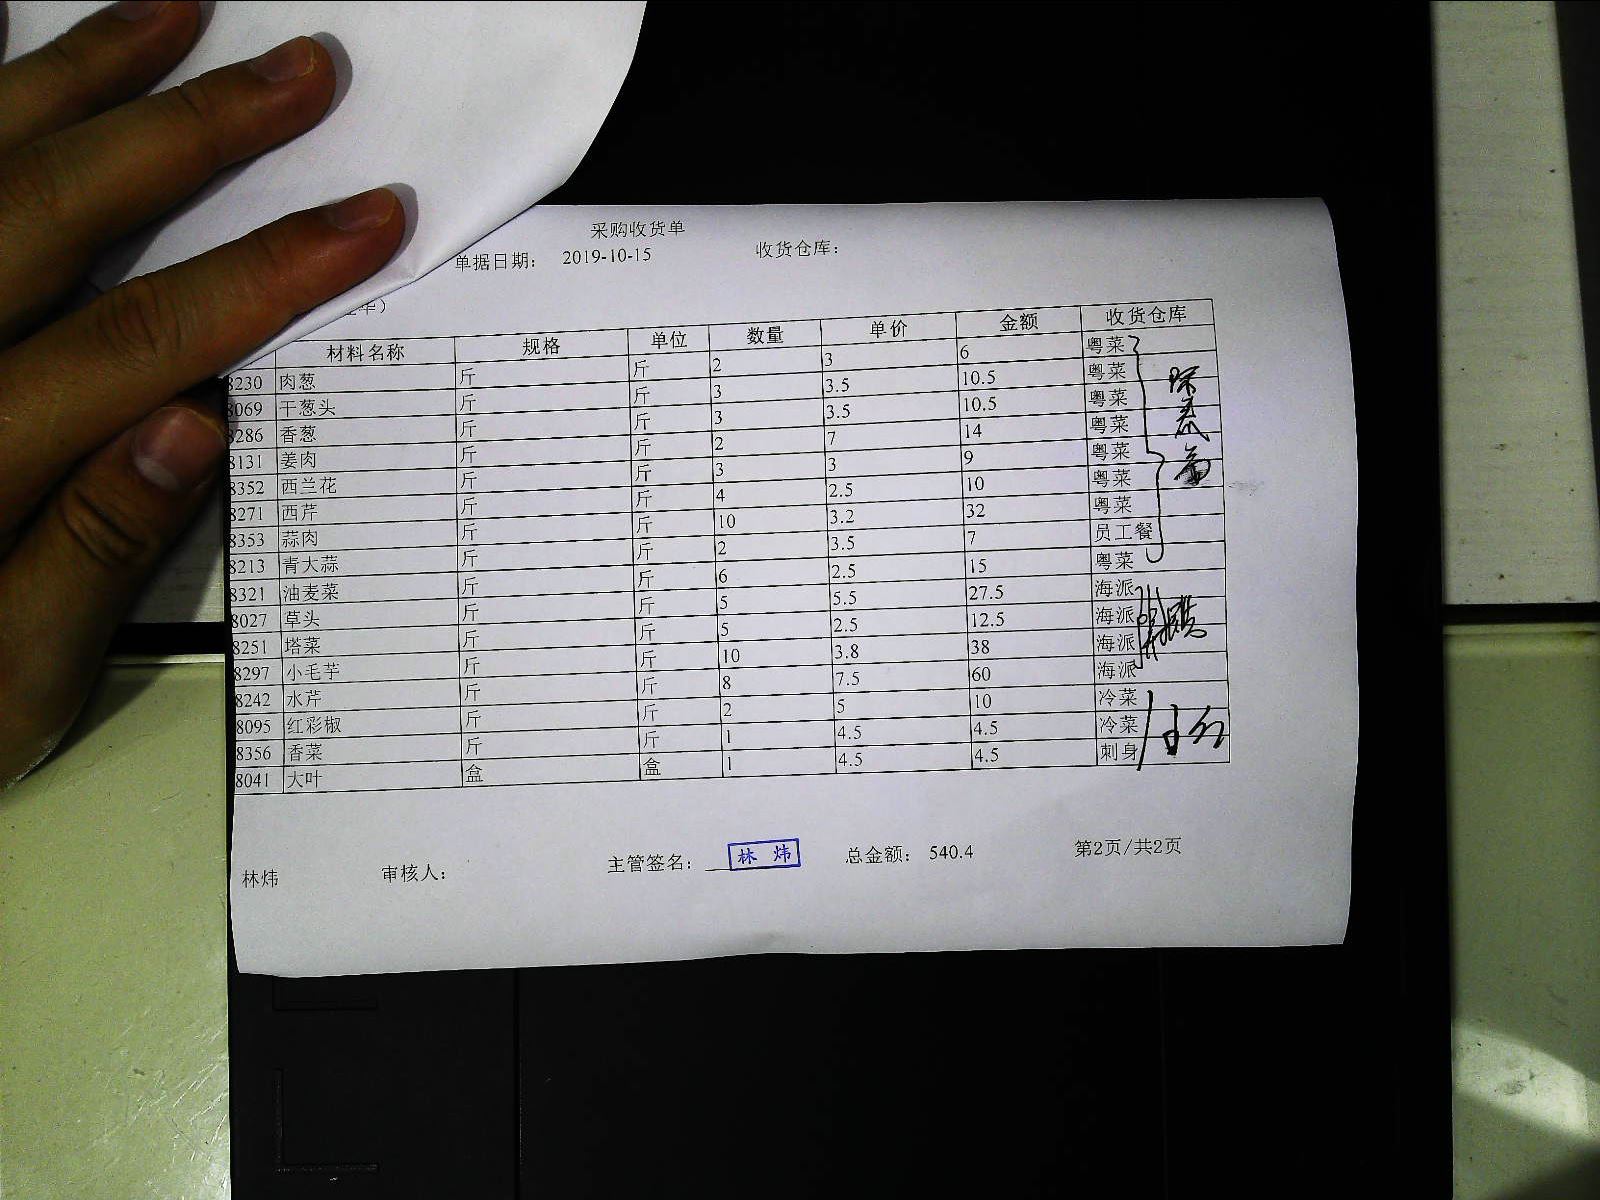 采购收货单
单据日期： 2019-10-15 收货仓库：
华）
材料名称 规格 单位 数量 单价 金额 收货仓库
8230 肉葱 斤 斤 2 3 6 粤菜
8069 干葱头 斤 斤 3 3.5 10.5 粤菜
8286 香葱 斤 斤 3 3.5 10.5 粤菜
8131 姜肉 斤 斤 2 7 14 粤菜
8352 西兰花 斤 斤 3 3 9 粤菜
8271 西芹 斤 斤 4 2.5 10 粤菜
8353 蒜肉 斤 斤 10 3.2 32 粤菜
8213 青大蒜 斤 斤 2 3.5 7 员工餐
8321 油麦菜 斤 斤 6 2.5 15 粤菜
8027 草头 斤 斤 5 5.5 27.5 海派
8251 塔菜 斤 斤 5 2.5 12.5 海派
8297 小毛芋 斤 斤 10 3.8 38 海派
8242 水芹 斤 斤 8 7.5 60 海派
8095 红彩椒 斤 斤 2 5 10 冷菜
8356 香菜 斤 斤 1 4.5 4.5 冷菜
8041 大叶 盒 盒 1 4.5 4.5 刺身
林炜 审核人： 主管签名： 林 炜 总金额： 540.4 第2页/共2页